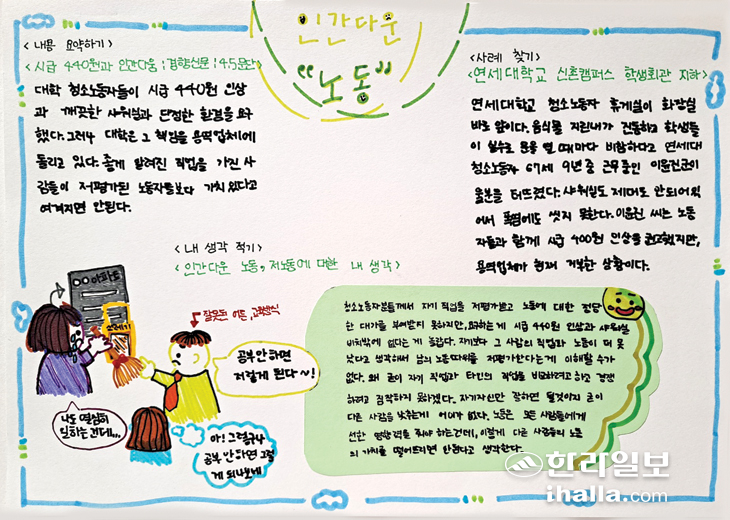 인간다운
"노동"
<내용 요약하기>
<시급 440원과 인간다움 : 경향신문 : 4.5문단>
대학 청소노동자들이 시급 440원 인상
과 깨끗한 샤워실과 단정한 환경을 요구
했다. 그러나 대학은 그 책임을 용역업체에
돌리고 있다. 좋게 알려진 직업을 가진 사
람들이 저평가된 노동자들보다 가치 있다고
여겨지면 안된다.
<사례 찾기>
<연세대학교 신촌캠퍼스 학생회관 지하>
연세대학교 청소노동자 휴게실이 화장실
바로 앞이다. 음식물 지린내가 진동하고 학생들
이 실수로 문을 열 때마다 비참하다고 연세대
청소노동자 67세 9년 중 근무중인 이윤진군이
울분을 터뜨렸다. 샤워실도 제대로 안되어있
어서 폭염에도 씻지 못한다. 이윤진 씨는 노동
자들과 함께 시급 400원 인상을 권고했지만,
용역업체가 현재 거부한 상황이다.
<내 생각 적기>
<인간다운 노동, 저노동에 대한 내 생각>
아파트
쓰레기
잘못된 어른, 고정관념
공부 안 하면
저렇게 된다~!
나도 열심히
일하는건데...
아! 그렇구나
공부 안하면 그렇
게 되나보네
청소노동자분들께서 자기 직업을 저평가받고 노동에 대한 정당
한 대가를 부여받지 못하지만, 요구하는 게 시급 440원 인상과 샤워실
비치밖에 없다는 게 슬펐다. 자기보다 그 사람의 직업과 노동이 더 못
났다고 생각해서 남의 노동따위를 저평가한다는게 이해할 수가
없다. 왜 굳이 자기 직업과 타인의 직업을 비교하려고 하고 경쟁
하려고 짐작하지 못하겠다. 자기자신만 잘하면 될것이지 굳이
다른 사람을 낮추는게 어이가 없다. 노동은 모든 사람들에게
선한 영향력을 줘야 하는건데, 이렇게 다른 사람들의 노동
의 가치를 떨어뜨리면 안된다고 생각한다.
한라일보
ihalla.com